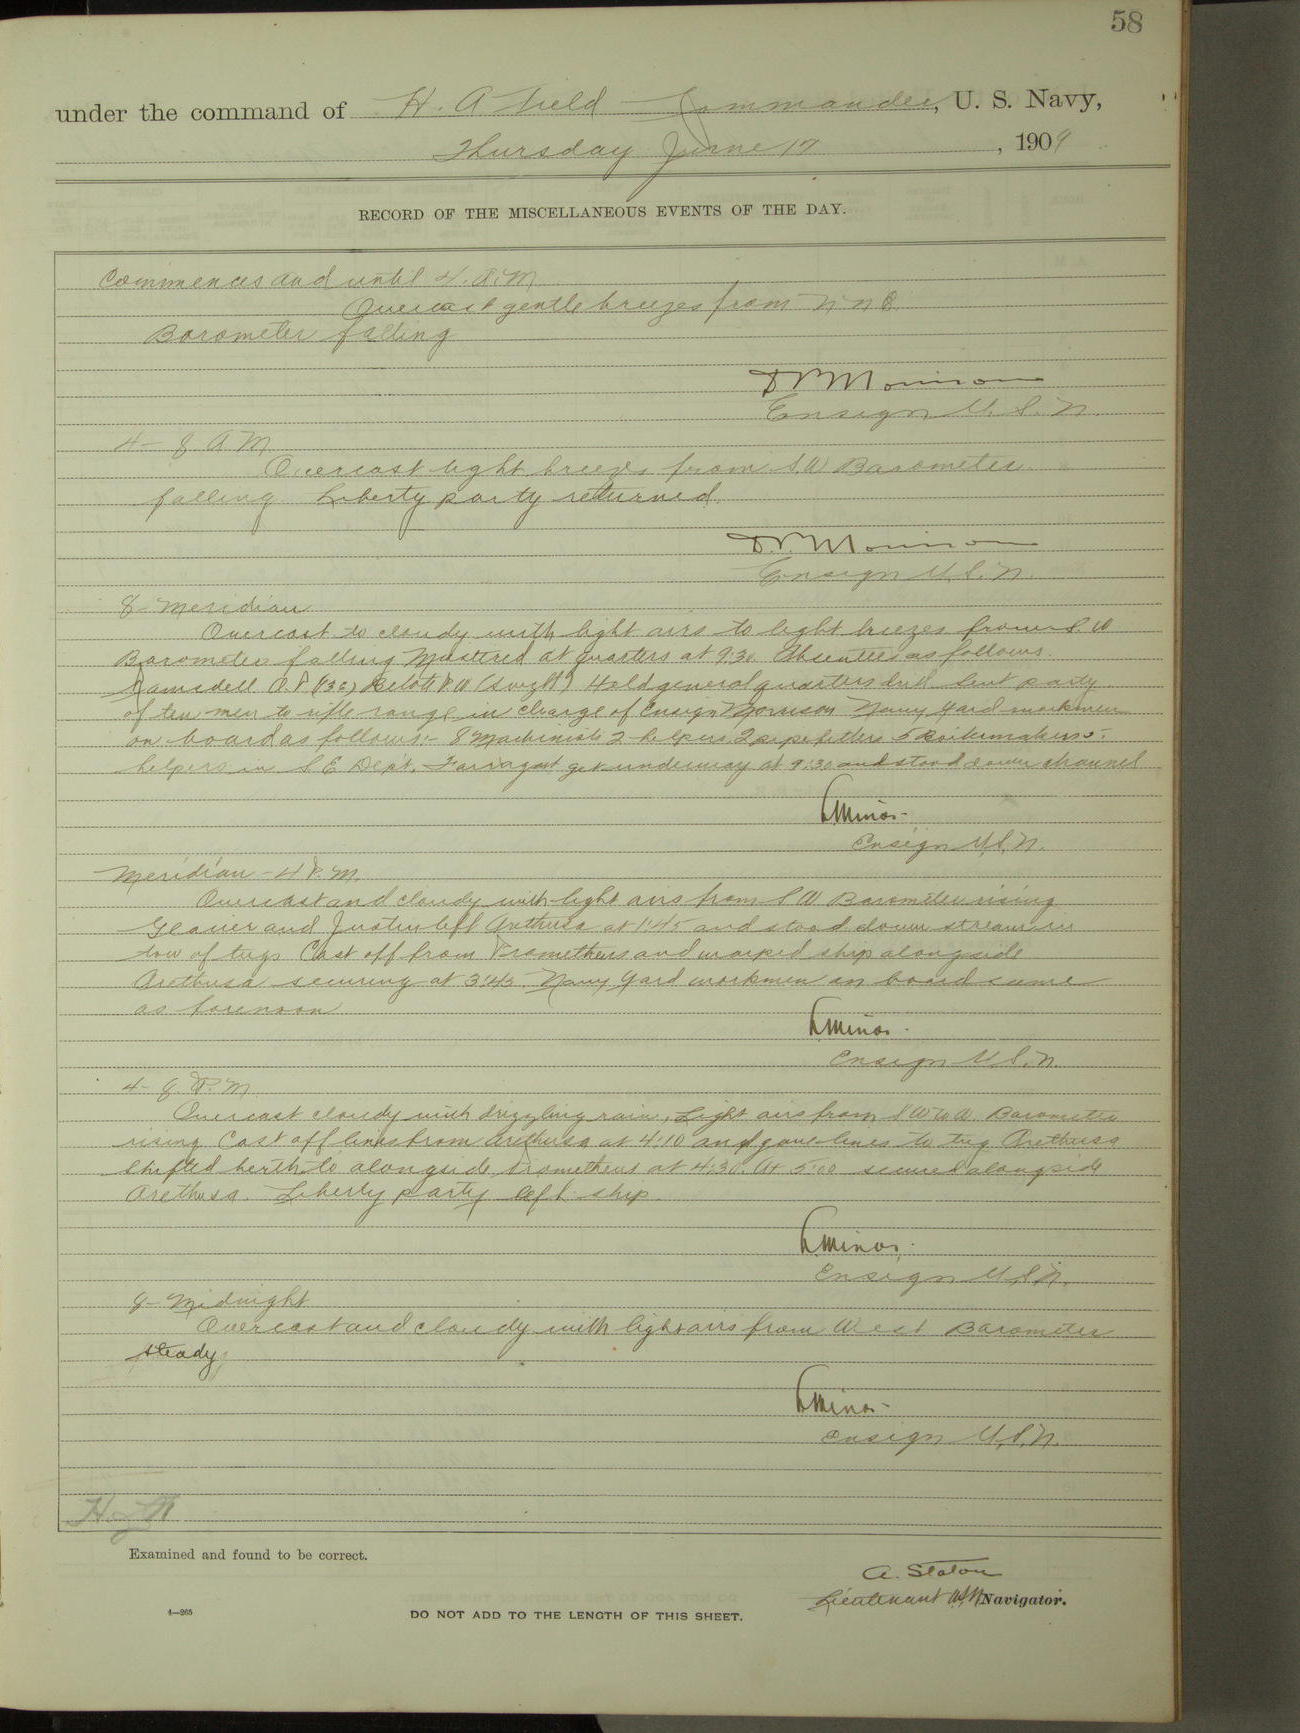 58
under the command of H. A. Field Commander, U. S. Navy,
Thursday June 17, 1909
RECORD OF THE MISCELLANEOUS EVENTS OF THE DAY.
Commences and until 4. A.M
Overcast gentle breezes from N N E.
Barometer falling
Ensign U. S. N.
4 - 8 A M
Overcast light breezes from S.W Barometer
falling. Liberty party returned.
Ensign U.S. N.
8 - Meridian
Overcast to cloudy with light airs to light breezes from S W
Barometer falling Mustered at quarters at 9:30 Absentees as follows.
Ramsdell Held general quarters drill Sent party
of ten men to rifle range in charge of Ensign Morrison Navy Yard workmen
on board as follows:- 8 Machinists 2 helpers 2 pipefitters 5 Boilermakers 5
helpers in S E Dept. Farragut got underway at 9:30 and stood down channel
Minor
Ensign U.S.N.
Meridian - 4 P. M.
Overcast and cloudy with light airs from S W Barometer rising
Glacier and Justin left Arethusa at 1:45 and stood down stream in
tow of tugs Cast off from Prometheus and warped ship alongside
Arethusa securing at 3:45. Navy Yard workmen on board same
as forenoon
Minor
Ensign U.S.N.
4 - 8 P. M
Overcast cloudy with drizzling rain, Light airs from Barometer
rising Cast off lines from Arethusa at 4:10 and gave lines to tug Arethusa
shifted berth to alongside Prometheus at 4:30. At 5:00 secured alongside
Arethusa. Liberty party left ship.
Minor
Ensign U.S.N.
8 - Midnight
Overcast and cloudy with light airs from West Barometer
steady
Minor
Ensign U.S.N.
Examined and found to be correct.
A. Staton
Lieutenant USN Navigator.
4—265
DO NOT ADD TO THE LENGTH OF THIS SHEET.